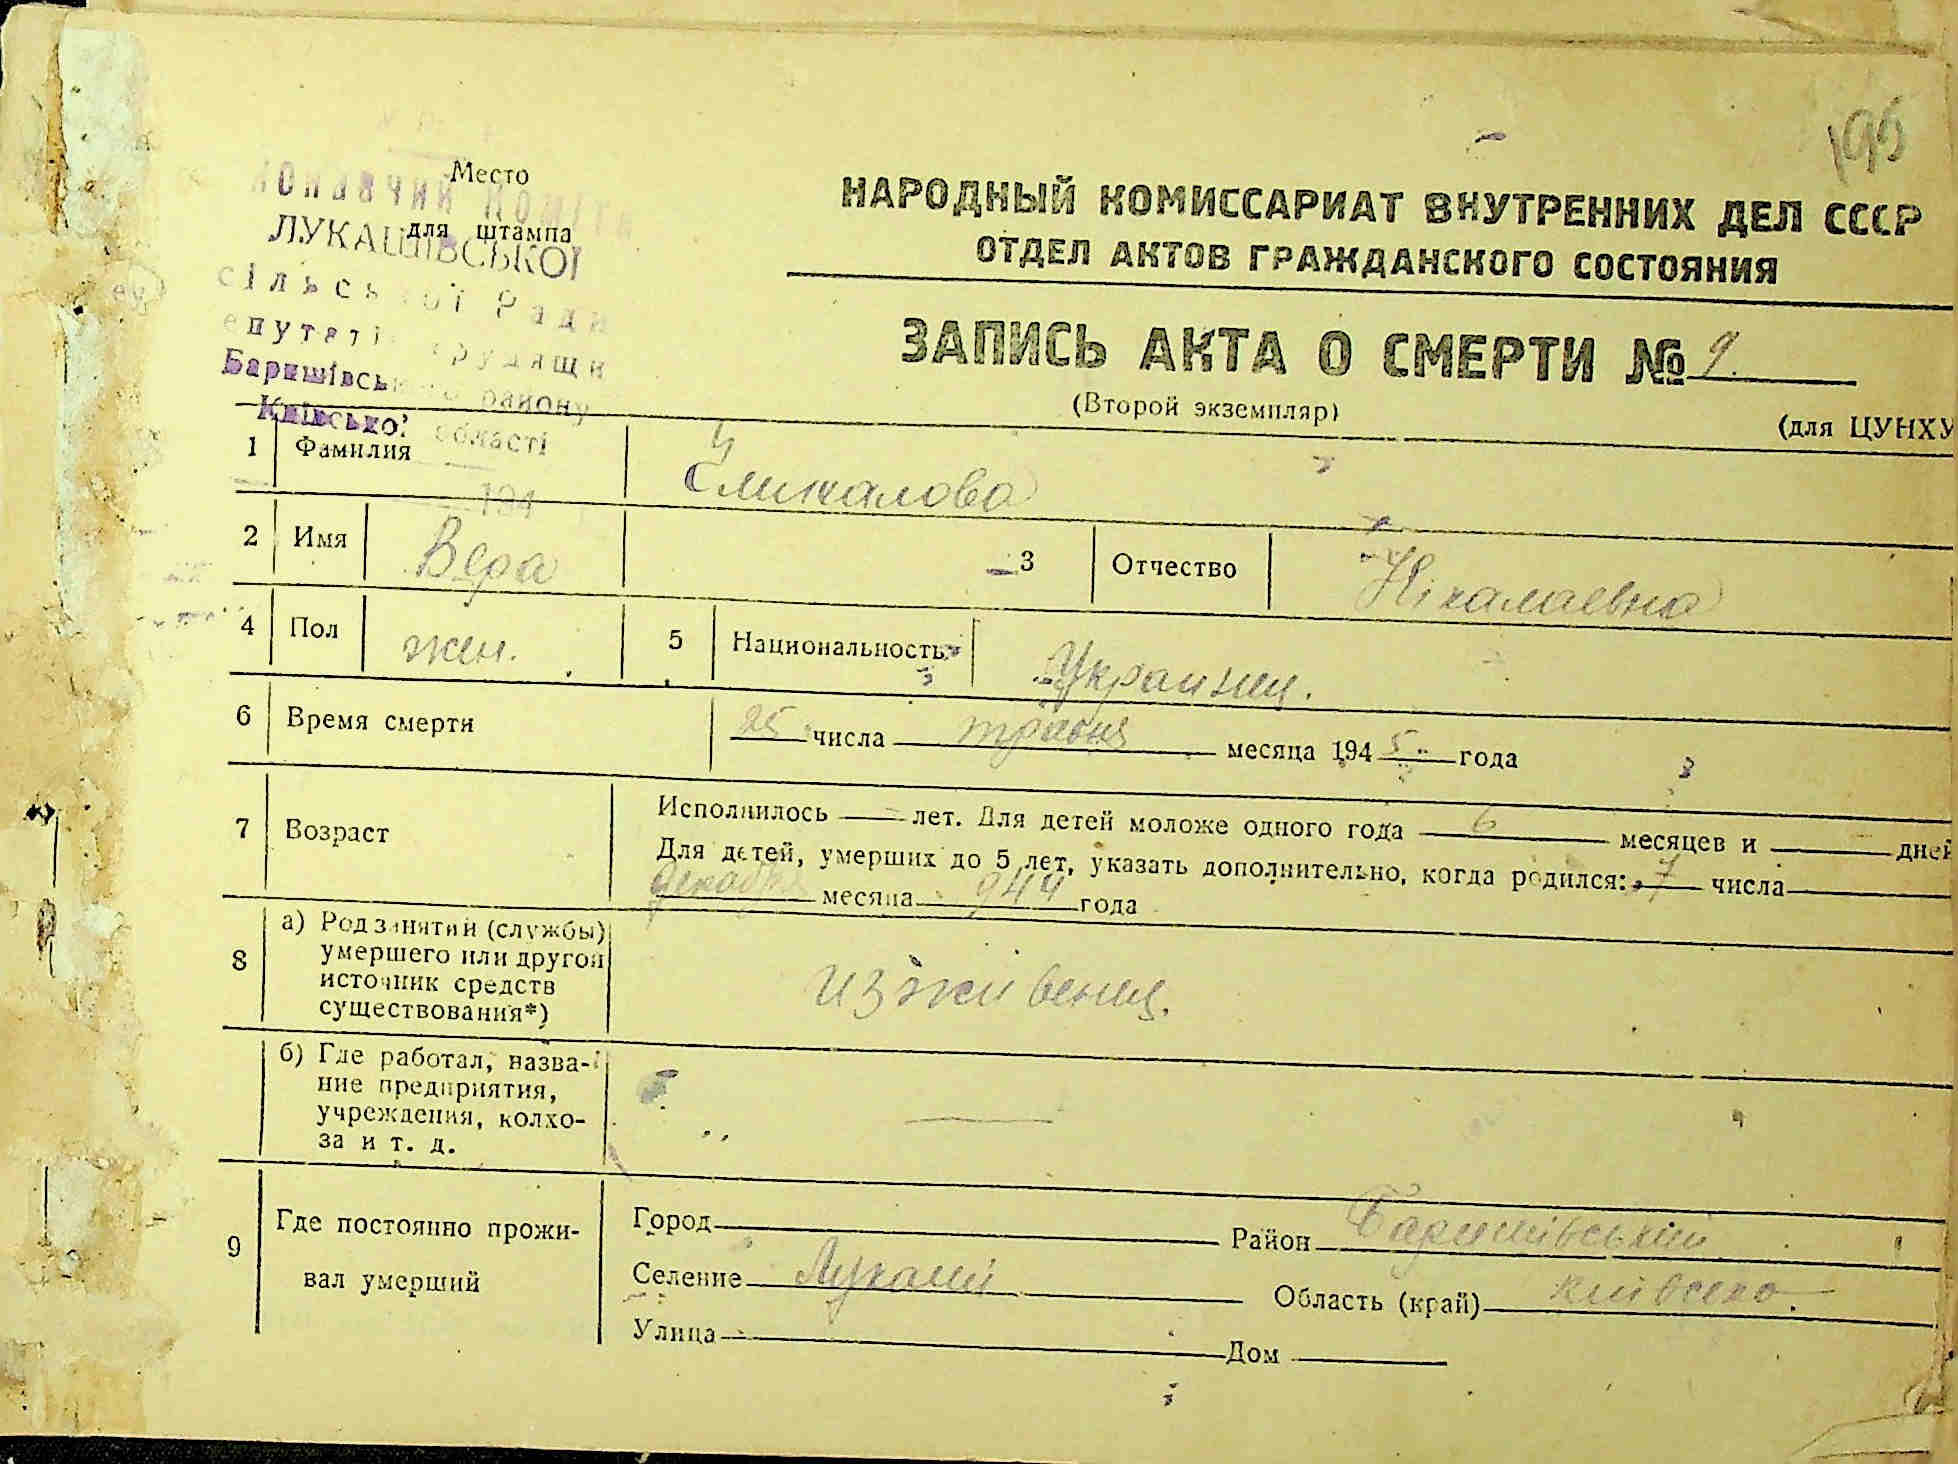 195
Место
для штампа
ЛУКАШІВСЬКОЇ
сільської Ради
Баришівського району
Київської області
194
НАРОДНЫЙ КОМИССАРИАТ ВНУТРЕННИХ ДЕЛ СССР
ОТДЕЛ АКТОВ ГРАЖДАНСКОГО СОСТОЯНИЯ
ЗАПИСЬ АКТА О СМЕРТИ № 9.
(Второй экземпляр)
(для ЦУНХУ
1 Фамилия
2 Имя Вера 3 Отчество Нікалаевна
4 Пол жен. 5 Национальность Украинец.
6 Время смерти 25 числа травня месяца 1945 года
7 Возраст Исполнилось — лет. Для детей моложе одного года 6 месяцев и — дней
Для детей, умерших до 5 лет, указать дополнительно, когда родился: 7 числа
декабря месяца 944 года
8 а) Род занятий (службы)
умершего или другой
источник средств
существования*)
изживенец.
б) Где работал, назва-
ние предприятия,
учреждения, колхо-
за и т. д.
—
9 Где постоянно прожи-
вал умерший
Город Район Баришівський
Селение Лукаши Область (край) Київсько
Улица Дом